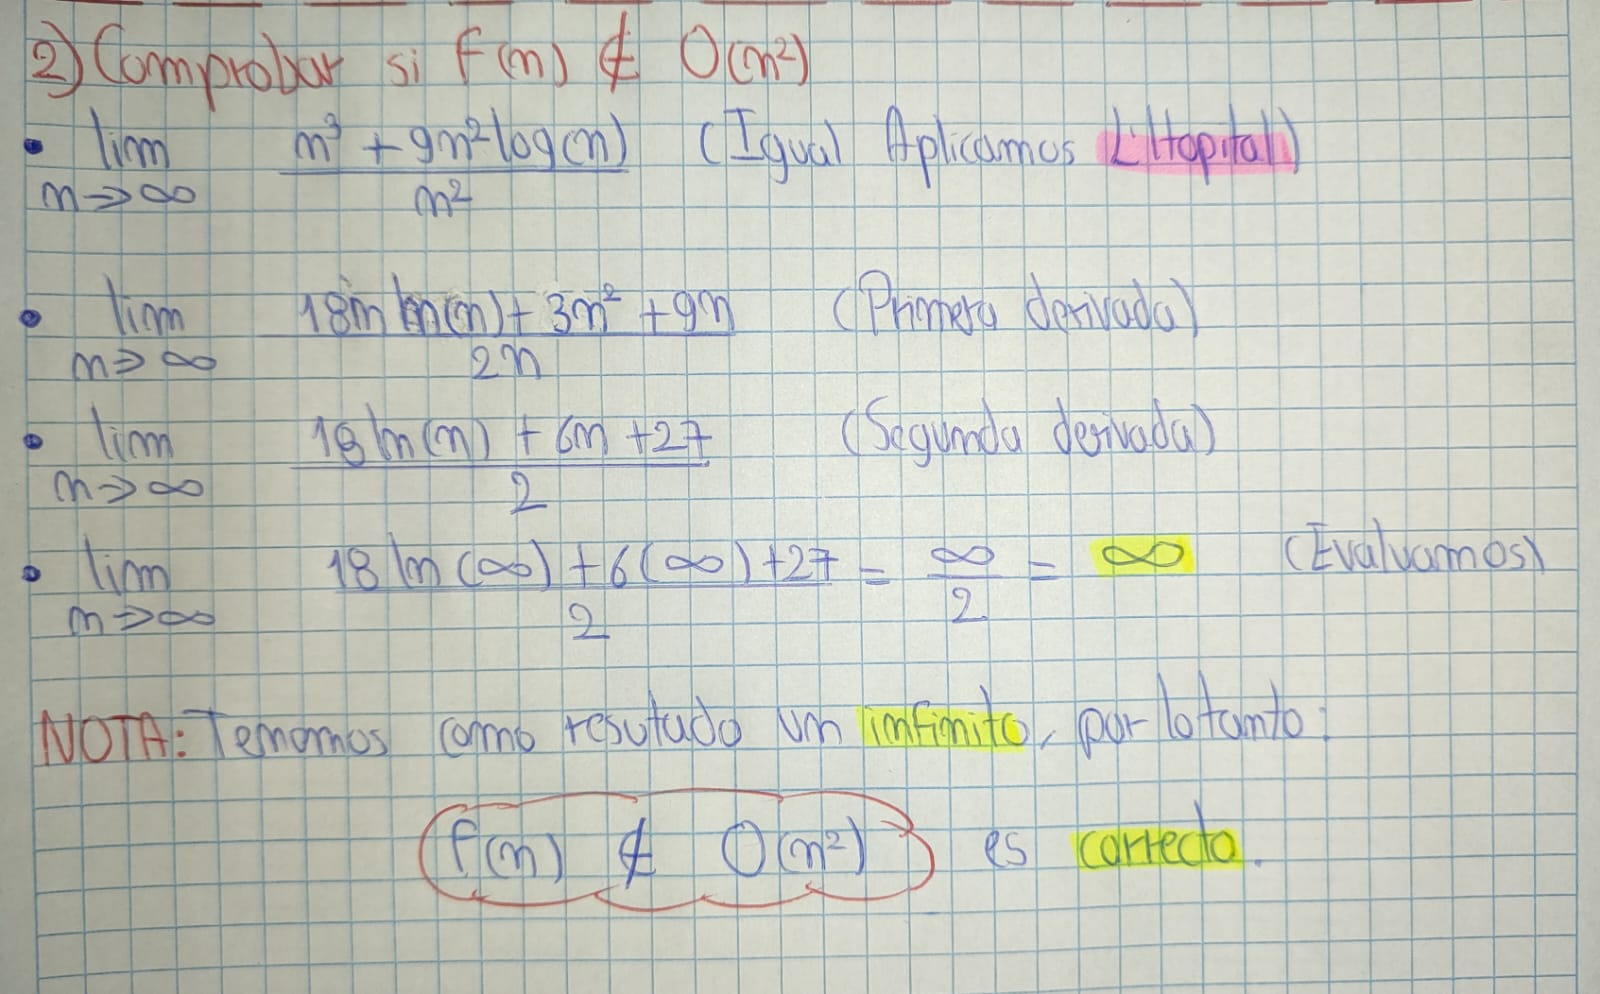 2) Comprobar si f(n) ∉ O(n²)
• lim n→∞ (n³ + 9n² log(n)) / n² (Igual Aplicamos L'Hopital)
• lim n→∞ (18n ln(n) + 3n² + 9n) / 2n (Primera derivada)
• lim n→∞ (18 ln(n) + 6n + 27) / 2 (Segunda derivada)
• lim n→∞ (18 ln(∞) + 6(∞) + 27) / 2 = ∞ / 2 = ∞ (Evaluamos)
NOTA: Tenemos como resutado un infinito, por lo tanto:
f(n) ∉ O(n²) es correcto.